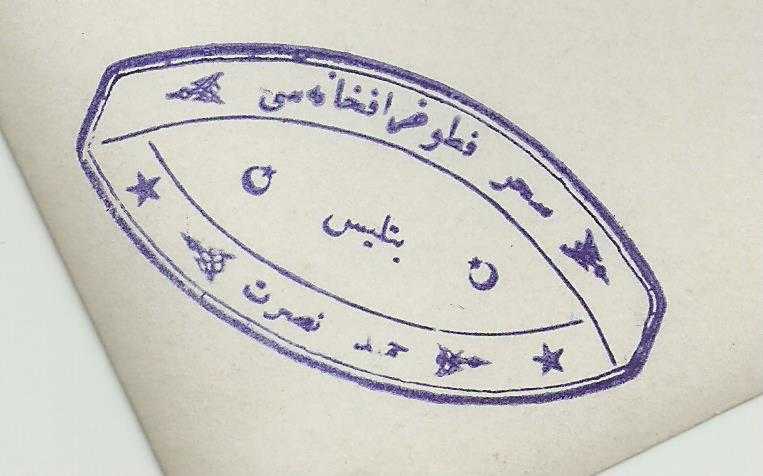 سحر فطوغرافخانه سی
بتليس
نصرت